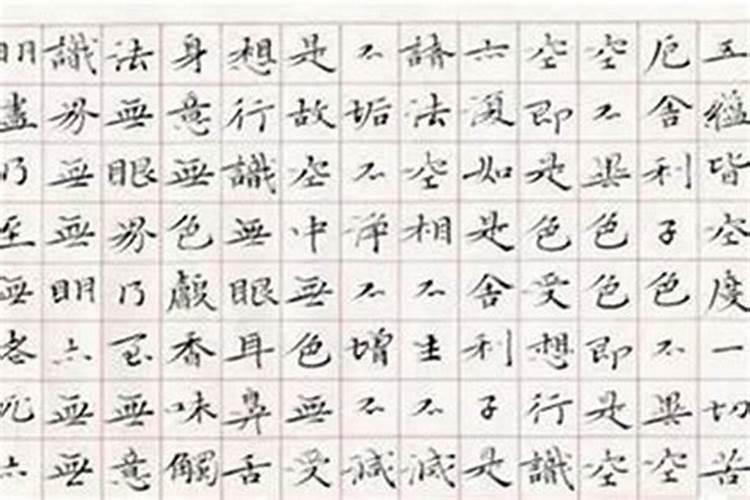 五蘊皆空度一切苦
厄舍利子色不異空
空不異色色即是空
空即是色受想行識
亦復如是舍利子是
諸法空相不生不滅
不垢不淨不增不減
是故空中無色無受
想行識無眼耳鼻舌
身意無色聲香味觸
法無眼界乃至無意
識界無無明亦無無
明盡乃至無老死亦